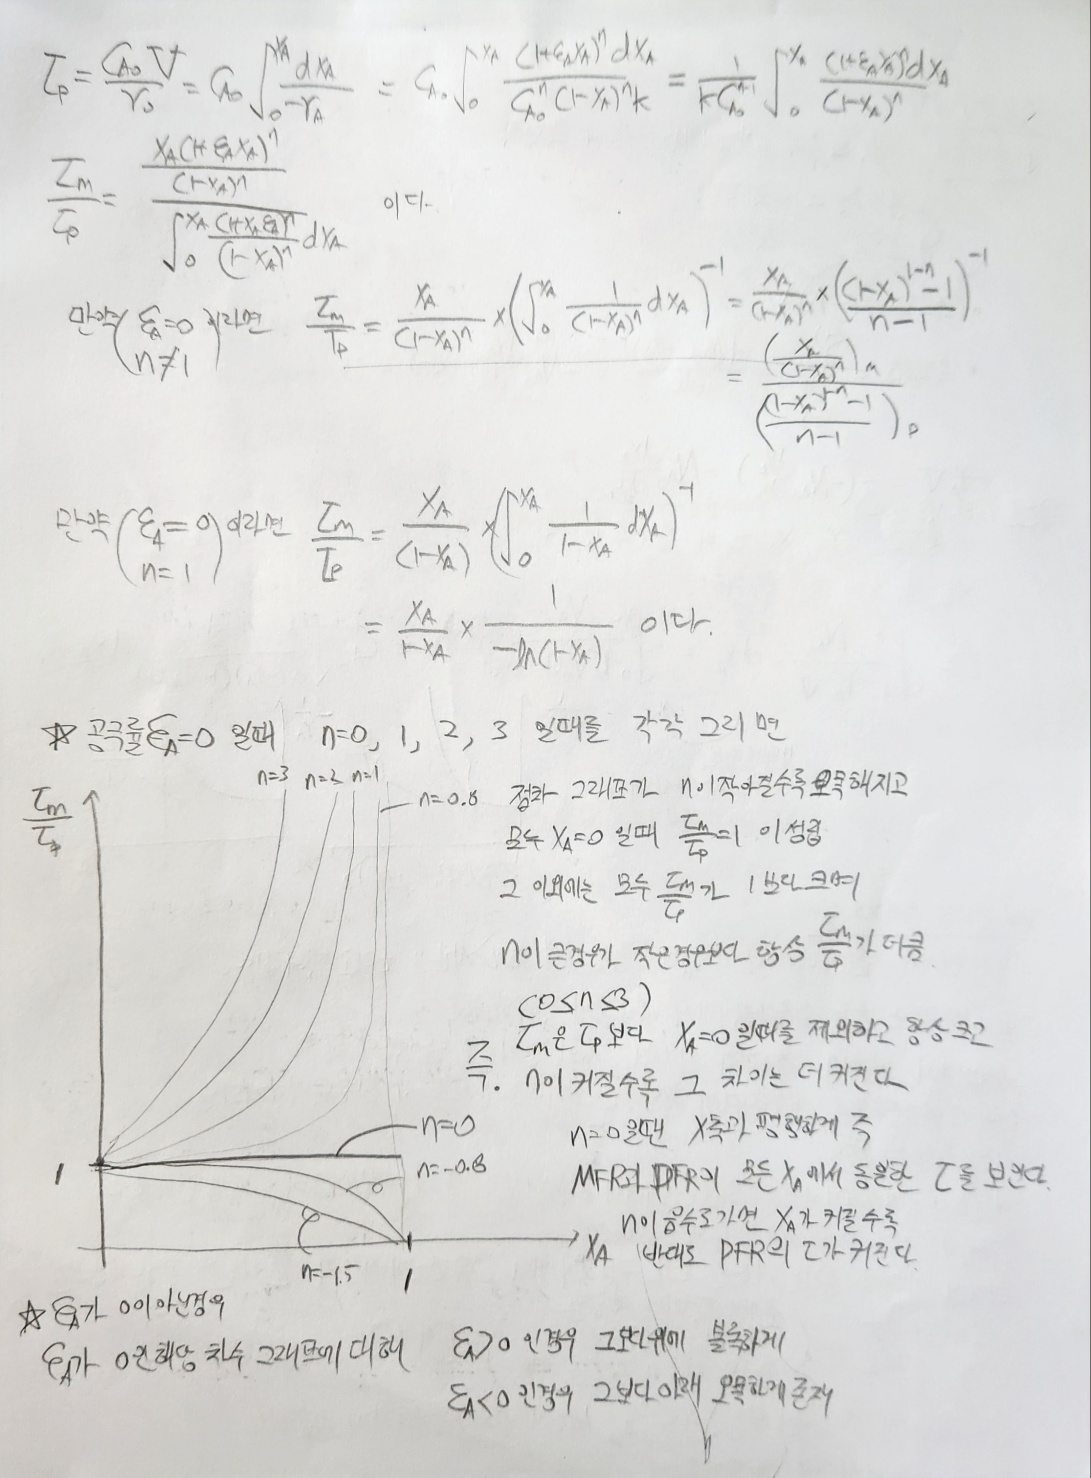 τp = CA0 V / v0 = CA0 ∫0^XA dXA / -rA = CA0 ∫0^XA (1+εAXA)^n dXA / CA0^n (1-XA)^n k = 1 / kCA0^(n-1) ∫0^XA (1+εAXA)^n dXA / (1-XA)^n
τm/τp = [XA(1+εAXA)^n / (1-XA)^n] / [∫0^XA (1+XAεA)^n / (1-XA)^n dXA] 이다.
만약 (εA=0 n≠1) 이라면 τm/τp = XA / (1-XA)^n × (∫0^XA 1 / (1-XA)^n dXA)^-1 = XA / (1-XA)^n × (((1-XA)^(1-n) -1) / (n-1))^-1
= (XA / (1-XA)^n)m / (((1-XA)^(1-n) -1) / (n-1))p
만약 (εA=0 n=1) 이라면 τm/τp = XA / (1-XA) × (∫0^XA 1 / 1-XA dXA)^-1
= XA / 1-XA × 1 / -ln(1-XA) 이다.
☆ 공극률 εA=0 일때 n=0, 1, 2, 3 일때를 각각 그리면
τm/τp
n=3 n=2 n=1
n=0.8
점차 그래프가 n이 작아질수록 오목해지고
모두 XA=0 일때 τm/τp=1 이 성립
그 이외에는 모두 τm/τp가 1보다 크며
n이 큰경우가 작은경우보다 항상 τm/τp가 더큼
(0≤n≤3)
즉. τm은 τp보다 XA=0 일때를 제외하고 항상 크고
n이 커질수록 그 차이는 더 커진다
n=0
n=0일땐 X축과 평행하게 즉
1
n=-0.8
MFR과 PFR의 모든 XA에서 동일한 τ를 보인다.
n이 음수로가면 XA가 커질수록
XA
반대로 PFR의 τ가 커진다.
n=-1.5
1
☆ εA가 0이아닌경우
εA가 0인해당 차수 그래프에 대해
εA>0 인경우 그보다위에 볼록하게
εA<0 인경우 그보다 아래 오목하게 존재